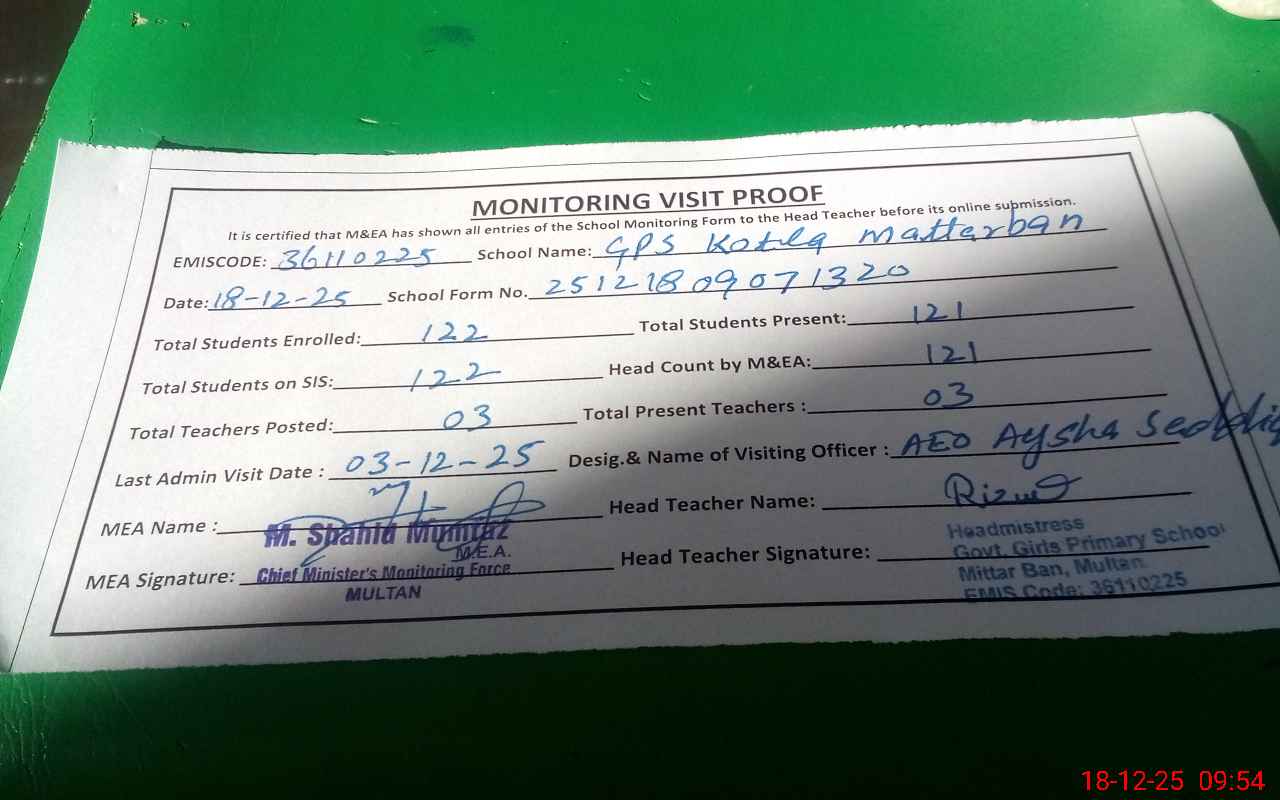 MONITORING VISIT PROOF
It is certified that M&EA has shown all entries of the School Monitoring Form to the Head Teacher before its online submission.
EMISCODE: 36110225 School Name: GPS Kotla Mattarban
Date: 18-12-25 School Form No. 25121809071320
Total Students Enrolled: 122 Total Students Present: 121
Total Students on SIS: 122 Head Count by M&EA: 121
Total Teachers Posted: 03 Total Present Teachers : 03
Last Admin Visit Date : 03-12-25 Desig.& Name of Visiting Officer : AEO Aysha
MEA Name : M. Shahid Mumtaz Head Teacher Name:
M.E.A.
MEA Signature: Chief Minister's Monitoring Force Head Teacher Signature:
MULTAN
Headmistress
Govt. Girls Primary School
Mittar Ban, Multan.
EMIS Code: 36110225
18-12-25 09:54